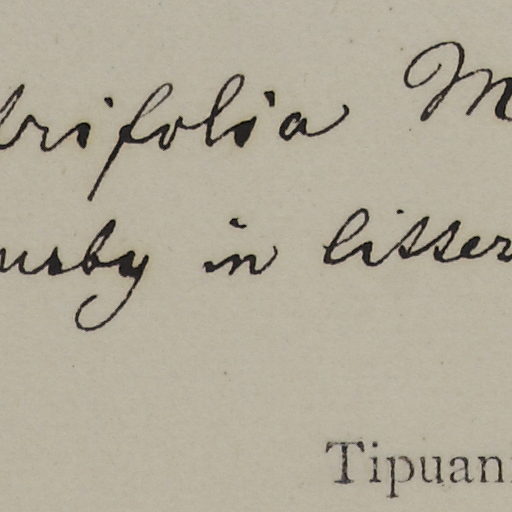 trifolia M
usby in litter
Tipuani